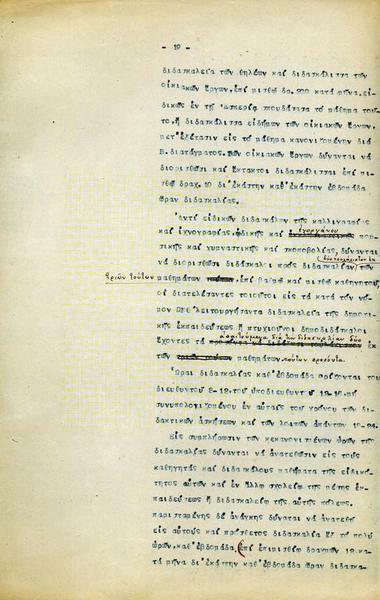 - 19 -
διδασκαλεῖα τῶν θηλέων καί διδασκάλισσα τῶν
οἰκιακῶν ἔργων ἐπί μισθῷ δρ. 200 κατά μῆνα, εἰ-
δικῶς ἐν τῇ σπουδάσασα τό μάθημα τοῦ-
το, ἤ διδασκάλισσα εἰδήμων τῶν οἰκιακῶν ἔργων
μετ' ἐξέτασιν εἰς τό μάθημα κανονιζομένην διά
Β. διατάγματος. τῶν οἰκιακῶν ἔργων δύνανται νά
διορισθῶσι καί ἔκτακτοι διδασκάλισσαι ἐπί μι-
σθῷ δραχ. 10 δι' ἑκάστην καθ' ἑκάστην ἑβδομάδα
ὥραν διδασκαλίας.
Ἀντί εἰδικῶν διδασκάλων τῆς καλλιγραφίας
καί ἰχνογραφίας, ᾠδικῆς καί ἐνοργάνου μου-
σικῆς καί γυμναστικῆς καί σκοποβολίας, δύνανται
νά διορισθῶσι διδάσκαλοι πρός διδασκαλίαν τῶν
τριῶν τούτων μαθημάτων ἐπί βαθμῷ καί μισθῷ καθηγητοῦ,
οἱ διατελέσαντες τοιοῦτοι εἰς τά κατά τόν
νόμον λειτουργήσαντα διδασκαλεῖα τῆς δημοτι-
κῆς ἐκπαιδεύσεως ἤ πτυχιοῦχοι δημοδιδάσκαλοι
ἔχοντες τά διά τήν διδασκαλίαν δύο ἐκ
τῶν μαθημάτων τούτων προσόντα.
Ὧραι διδασκαλίας καθ' ἑβδομάδα ὁρίζονται τοῦ
διευθυντοῦ 8-12, τοῦ ὑποδιευθυντοῦ 12-16, μή
συνυπολογιζομένου ἐν αὐταῖς τοῦ χρόνου τῶν δι-
δακτικῶν ἀσκήσεων καί τῶν λοιπῶν ἁπάντων 18-24.
Εἰς συμπλήρωσιν τῶν κεκανονισμένων ὡρῶν τῆς
διδασκαλίας δύνανται νά ἀνατεθῶσιν εἰς τούς
καθηγητάς καί διδασκάλους μαθήματα τῆς εἰδικό-
τητος αὐτῶν καί ἐν ἄλλῳ σχολείῳ τῆς μέσης ἐκ-
παιδεύσεως ἤ διδασκαλείῳ τῆς αὐτῆς πόλεως.
παρισταμένης δέ ἀνάγκης δύναται νά ἀνατεθῇ
εἰς αὐτούς καί πρόσθετος διδασκαλία ἕξ τό πολύ
ὡρῶν, καθ' ἑβδομάδα, ἐπί ἐπιμισθίῳ δραχμῶν 12 κα-
τά μῆνα δι' ἑκάστην καθ' ἑβδομάδα ὥραν διδασκα-